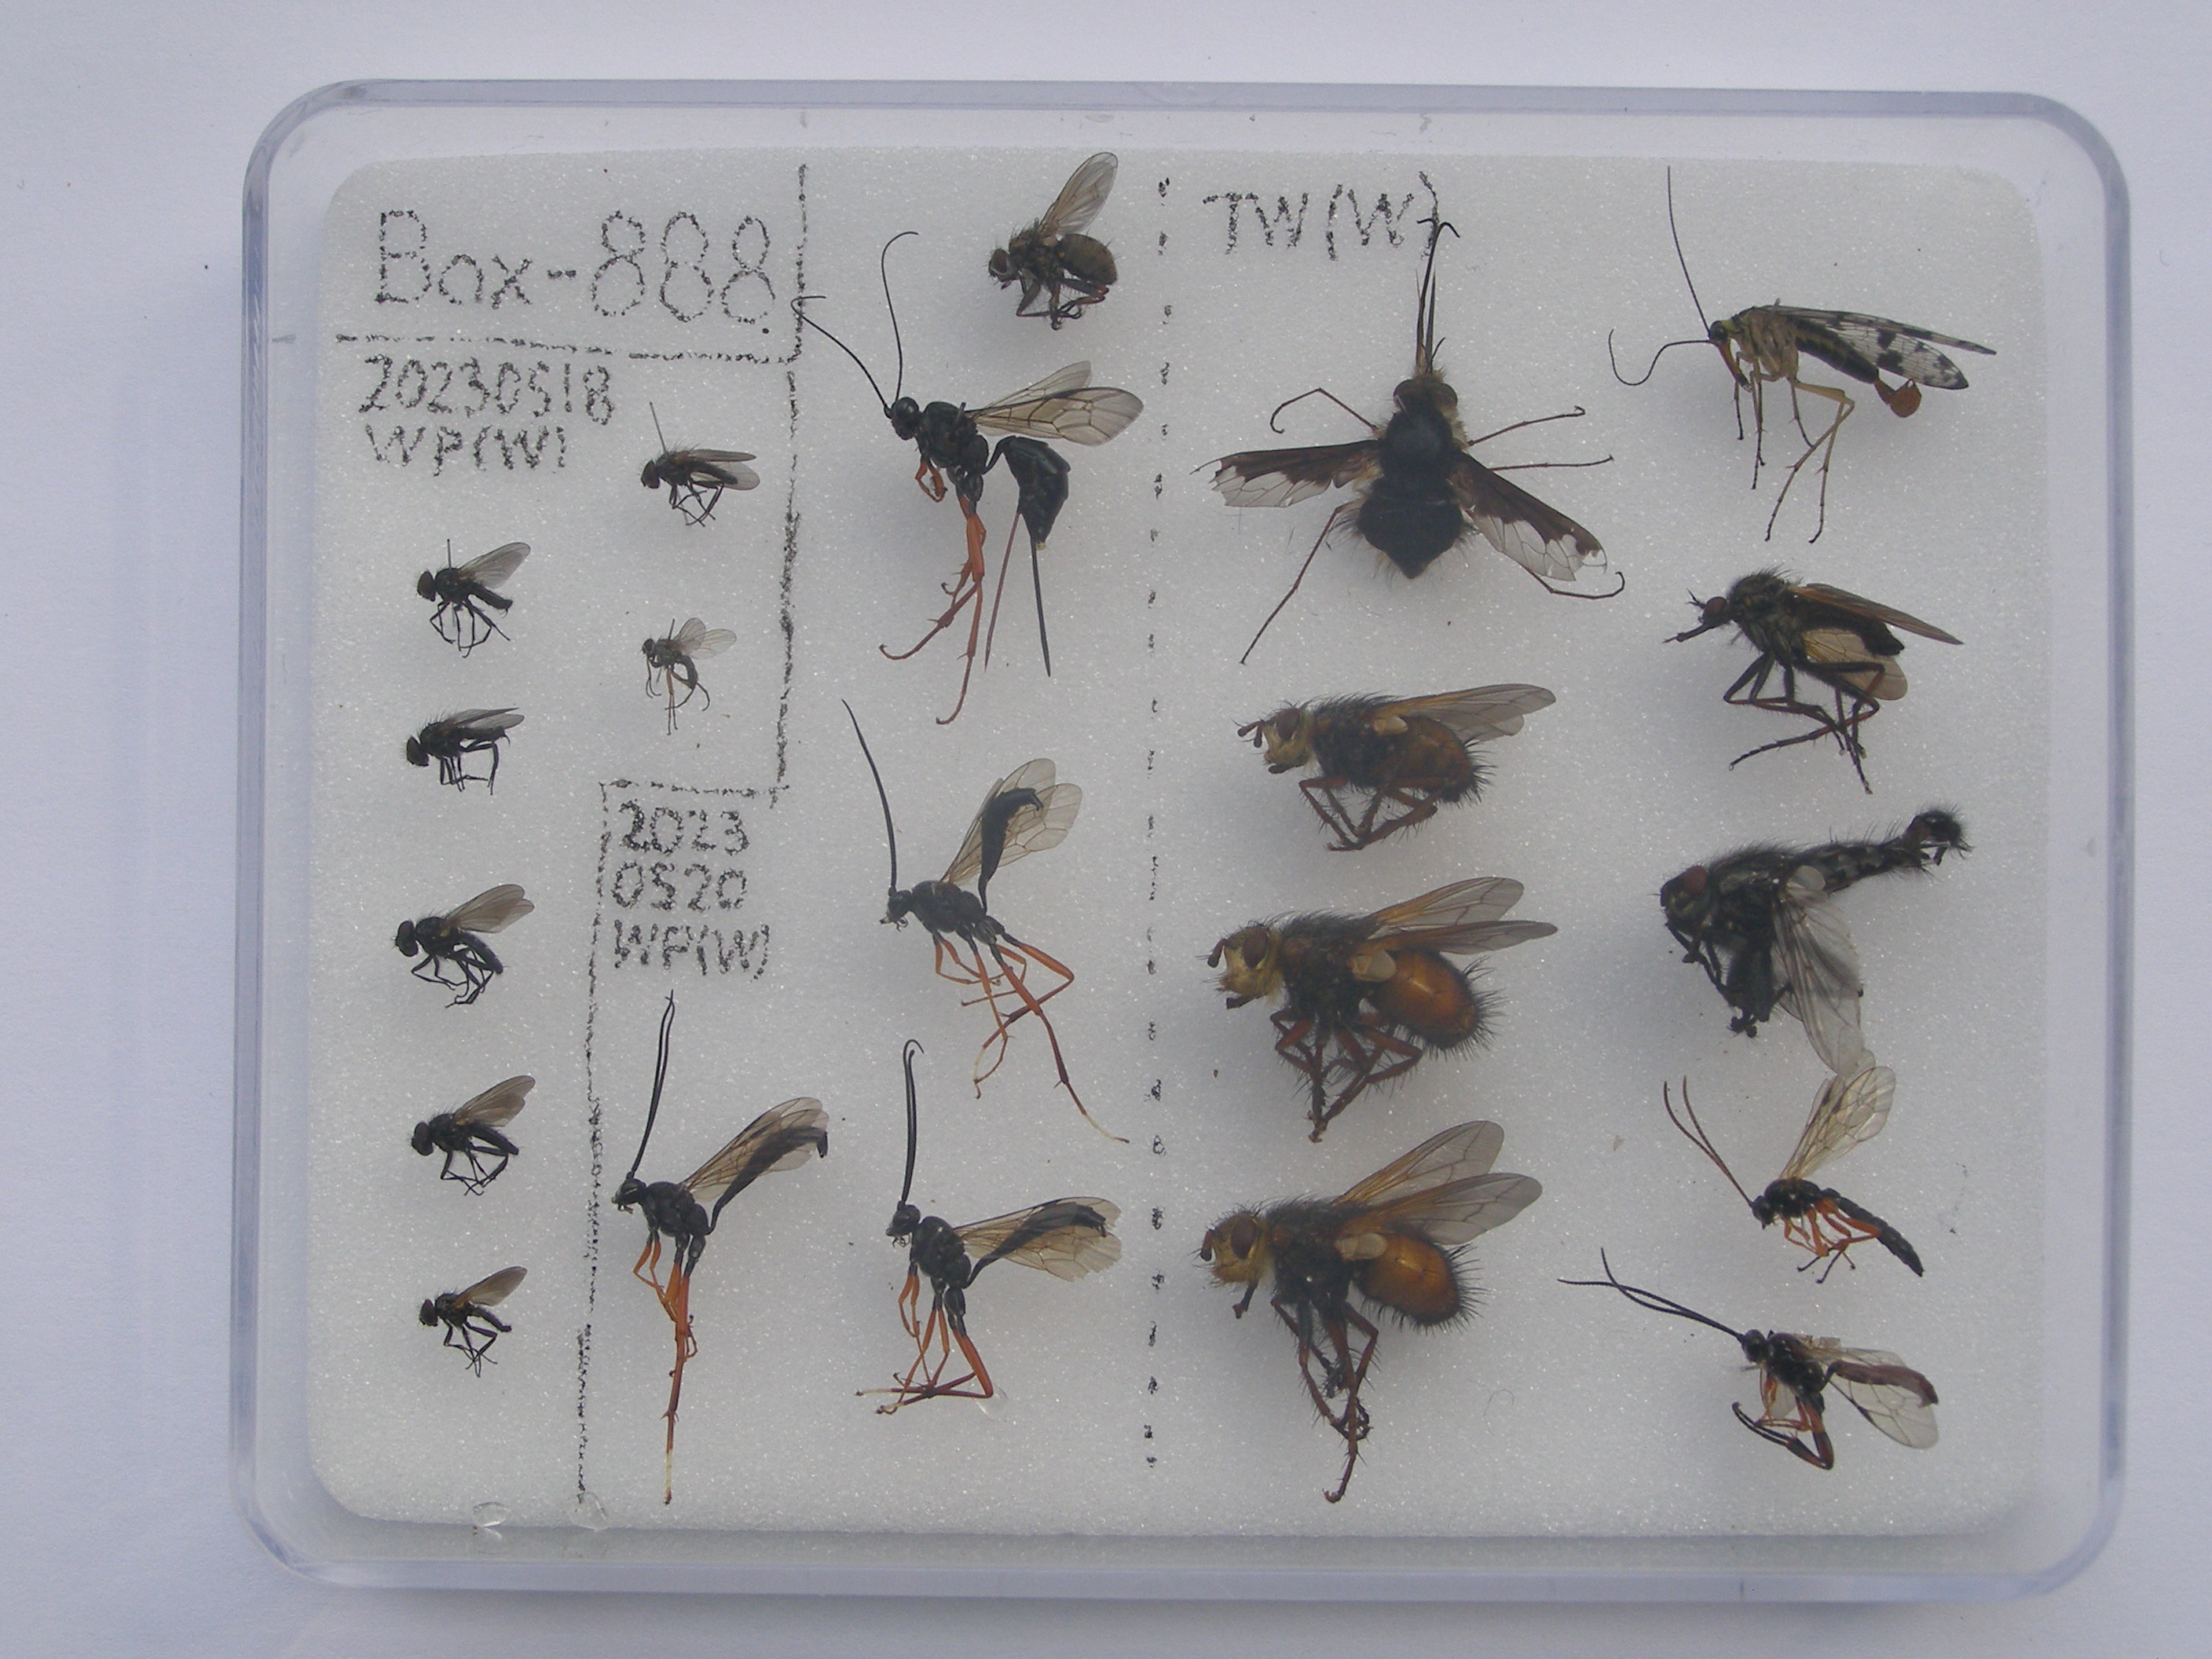 Box-888
20230518
WP(W)
2023
0520
WP(W)
TW(W)